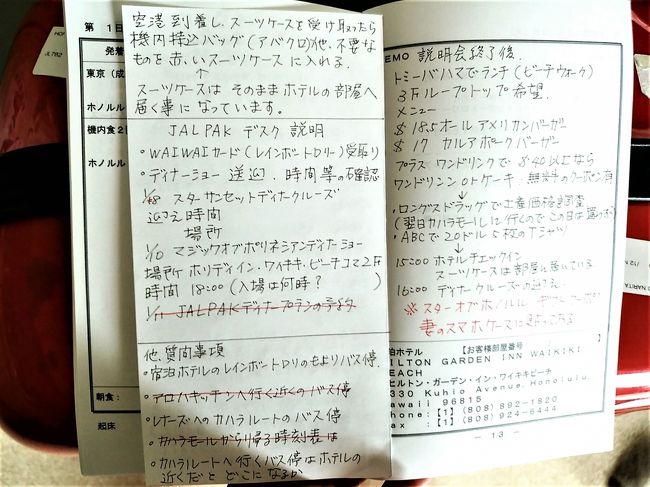 第 1日
発着
東京 (成
ホノルル
機内食2
ホノルル
朝食:
起床
JL782
空港到着し、スーツケースを受け取ったら
機内持込バッグ(アバクロ)他、不要な
ものを赤いスーツケースに入れる。
↑
スーツケースは そのままホテルの部屋へ
届く事に なっています。
JALPAK デスク 説明
・WAIWAIカード(レインボートロリー)受取り
・ディナーショー 送迎、時間等の確認
スターサンセットディナークルーズ
迎え時間
場所
1/10 マジックオブポリネシアンディナーショー
場所 ホリデイイン・ワイキキ・ビーチコマ2F
時間 18:00 (入場は何時? )
1/11 JALPAKディナープランの予約
他、質問事項
・宿泊ホテルのレインボートロリのもよりバス停
・アロハキッチンへ行く近くのバス停
・レナーズへのカハラルートのバス停
・カハラモールから帰る時刻表は
・カハラルートへ行くバス停はホテルの
近くだと どこになるか
EMO 説明会終了後、
トミーバハマでランチ(ビーチウォーク)
3F ルーフトップ 希望、
メニュー
$ 18.5 オールアメリカンバーガー
$ 17 カルアポークバーガー
プラス ワンドリンクで $40以上なら
↓
・ロングスドラッグで土産価格調査
(翌日カハラモールに行くのでこの日は
・ABCで20ドル5枚のTシャツ
↓
15:00 ホテルチェックイン
スーツケースは部屋に届いている
16:00 ディナークルーズの迎え、
※スターオブホノルル
妻のスマホケースに
泊ホテル 【お客様部屋番号
ILTON GARDEN INN WAIKIKI
EACH
ヒルトン・ガーデン・イン・ワイキキビーチ
330 Kuhio Avenue, Honolulu,
awaii 96815
hone:【1】 (808) 892-1820
ax :【1】 (808) 924-6444
- 13 -